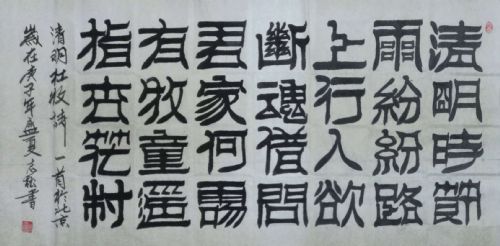 清明時節
雨紛紛路
上行人欲
斷魂借問
家何
有牧童遥
指杏花村
清明杜牧詩一首於北京
歲在庚子年盛夏書